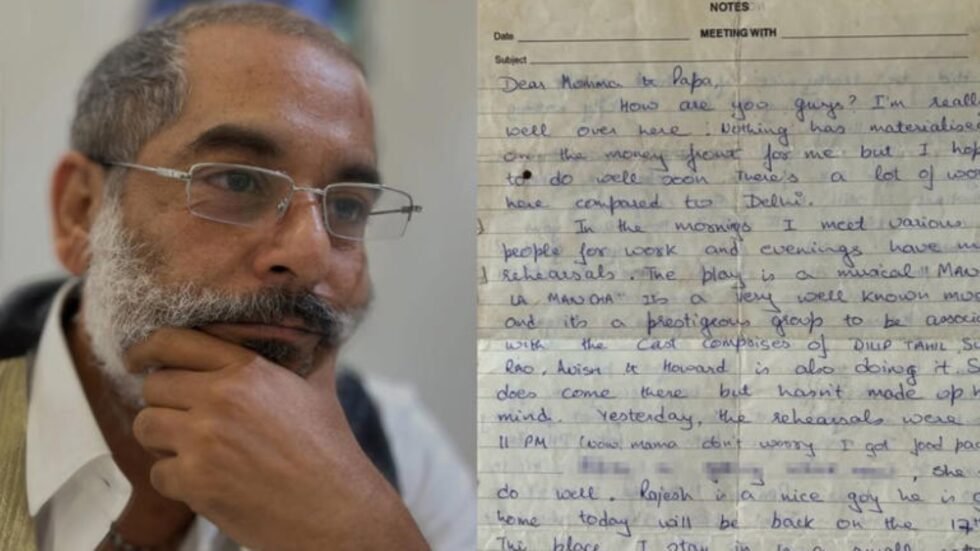 NOTES
Date MEETING WITH
Subject
Dear Momma & Papa,
How are you guys? I'm really
well over here. Nothing has materialise
on the money front for me but I hop
to do well soon There's a lot of wor
here compared to Delhi.
In the mornings I meet various
people for work and evenings have
rehearsals. The play is a musical "MAN
LA MANCHA" Its a very well known mu
and its a prestigeous group to be associ
with the Cast comprises of DILIP TAHIL
Rao, & Howard is also doing it. S
does come there but hasn't made up h
mind. Yesterday, the rehearsals were
11 PM (wow, mama don't worry I got food pac
, She
do well. Rajesh is a nice guy he is
home today will be back on the 17
The place I stay in is a small